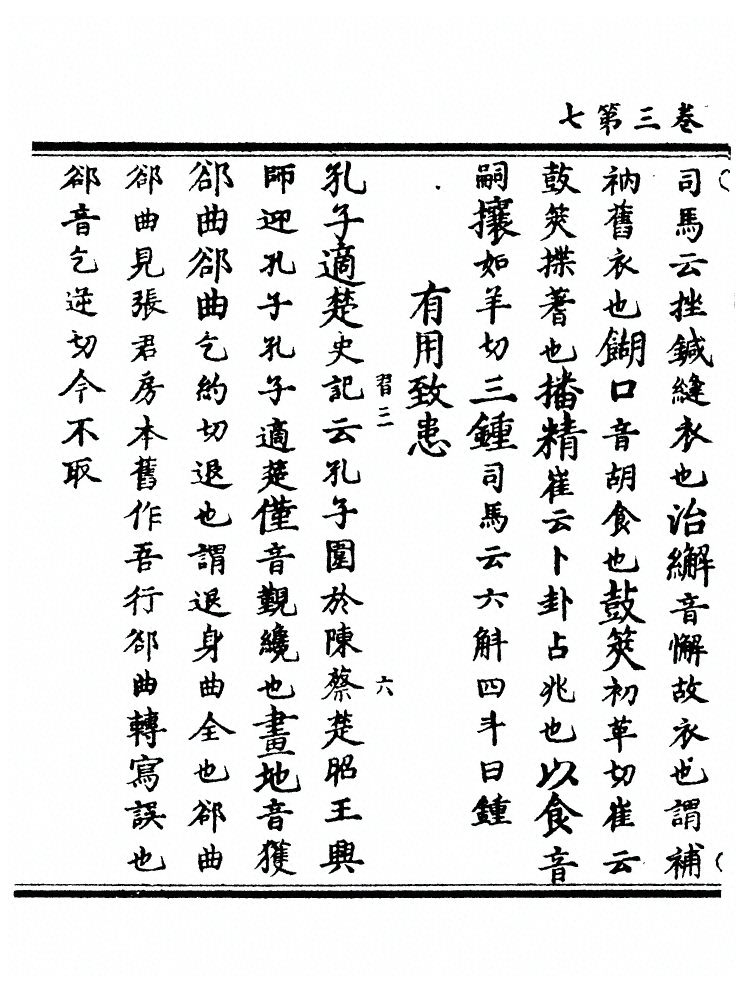 卷三第七
司馬云挫鍼縫衣也治繲音懈故衣也謂補
衲舊衣也餬口音胡食也鼓筴初革切崔云
鼓筴揲蓍也播精崔云卜卦占兆也以食音
嗣攘如羊切三鍾司馬云六斛四斗曰鍾
有用致患
習三
六
孔子適楚史記云孔子圍於陳蔡楚昭王興
師迎孔子孔子適楚僅音覲纔也畫地音獲
郤曲郤曲乞約切退也謂退身曲全也郤曲
郤曲見張君房本舊作吾行郤曲轉寫誤也
郤音乞逆切今不取